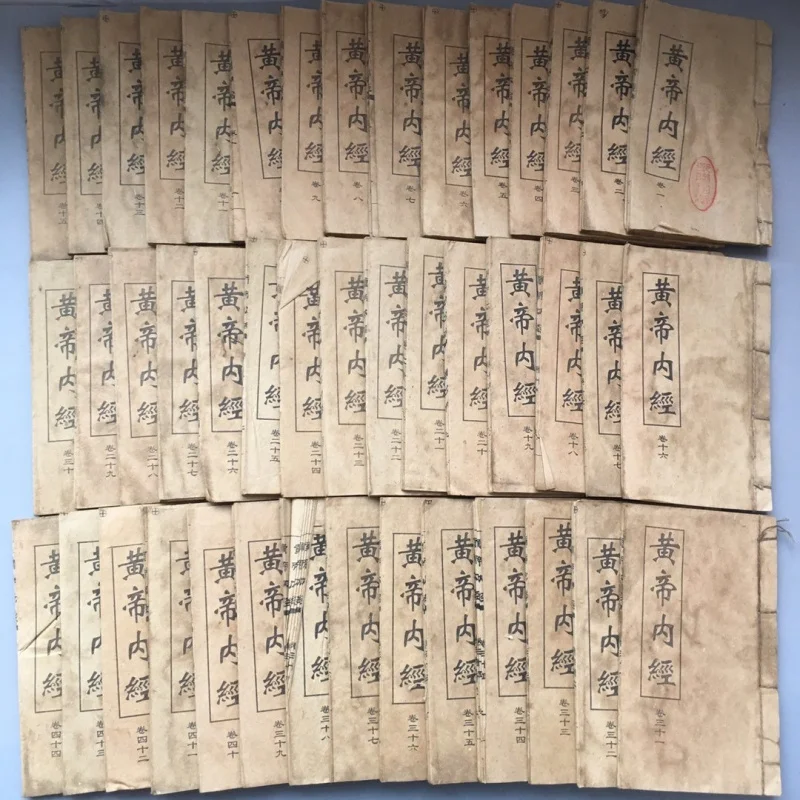 黄帝内經
卷一
黄帝内經
卷二
黄帝内經
卷三
黄帝内經
卷四
黄帝内經
卷五
黄帝内經
卷六
黄帝内經
卷七
黄帝内經
卷八
黄帝内經
卷九
黄帝内經
黄帝内經
卷十一
黄帝内經
卷十二
黄帝内經
卷十三
黄帝内經
卷十四
黄帝内經
卷十五
黄帝内經
卷十六
黄帝内經
卷十七
黄帝内經
卷十八
黄帝内經
卷十九
黄帝内經
卷二十
黄帝内經
卷二十一
黄帝内經
卷二十二
黄帝内經
卷二十三
黄帝内經
卷二十四
黄帝内經
卷二十五
黄帝内經
卷二十六
黄帝内經
卷二十七
黄帝内經
卷二十八
黄帝内經
卷二十九
黄帝内經
卷三十
黄帝内經
卷三十一
黄帝内經
卷三十二
黄帝内經
卷三十三
黄帝内經
卷三十四
黄帝内經
卷三十五
黄帝内經
卷三十六
黄帝内經
卷三十七
黄帝内經
卷三十八
黄帝内經
卷三十九
黄帝内經
卷四十
黄帝内經
卷四十一
黄帝内經
卷四十二
黄帝内經
卷四十三
黄帝内經
卷四十四